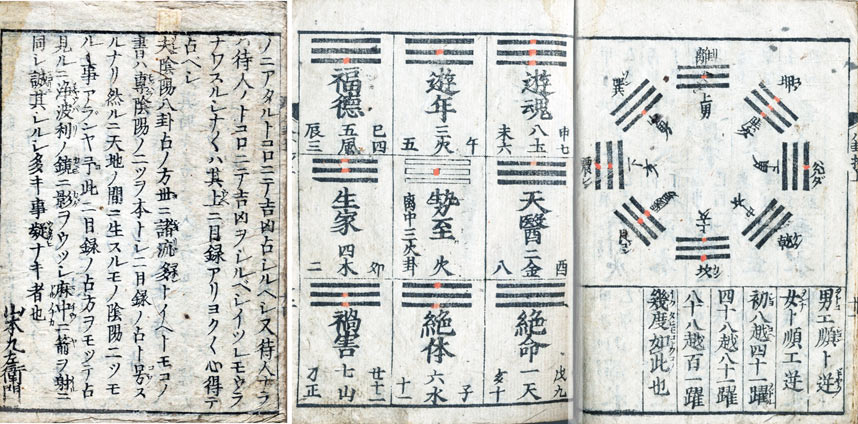 離
坤
巽
兌
乾
坎
男エ順ト逆
女ト順エ逆
初八越四十一躍
四十八越八十一躍
八十八越百一躍
幾度如此也
遊魂
八玉
申七
未六
遊年
三火
午
五
福德
五風
巳四
辰三
天醫
二金
酉
八
勢至
火
離中三火卦
生家
四木
卯
二
絶命
一天
戌九
亥十
絶体
六水
子
十一
禍害
七山
丑十二
刁正
ノニアタルトコロニテ吉凶占シルヘシ又待人ナラ
ハ待人ノトコロニテ吉凶ヲシルベシイツレモウラ
ナワスルシナ〱ハ其上ニ目録アリヨク〱心得テ
占ベシ
夫陰陽八卦占ノ方世ニ諸流多トイヘトモコノ
書ハ専陰陽ノ二ツヲ本トシ目録ノ占ト号ス
ルナリ然ルニ天地ノ間ニ生スルモノ陰陽二ツモ
ル事アランヤ予此ニ目録ノ占方ヲモツテ占
見ルニ浄波利ノ鏡ニ影ヲウツシ麻中ニ箭ヲ射ニ
同シ誠其シルシ多キ事疑ナキ者也
山本九左衛門